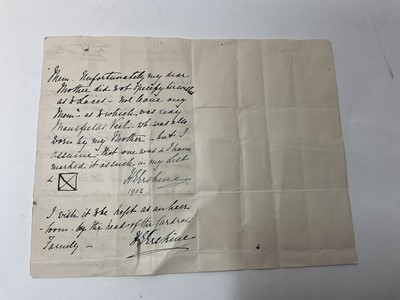 "Mem. Unfortunately my dear
Mother did not specify in will
as to Laces - not leave any
"Mem" as to which was Lady
Mansfields Veil - wh was also
worn by my Mother - but I
assume that one was & I have
marked it as such in my List
&
HErskine
1902
I wish it to be kept as an heir
loom - by the heads of the Cardross
Family -
HErskine